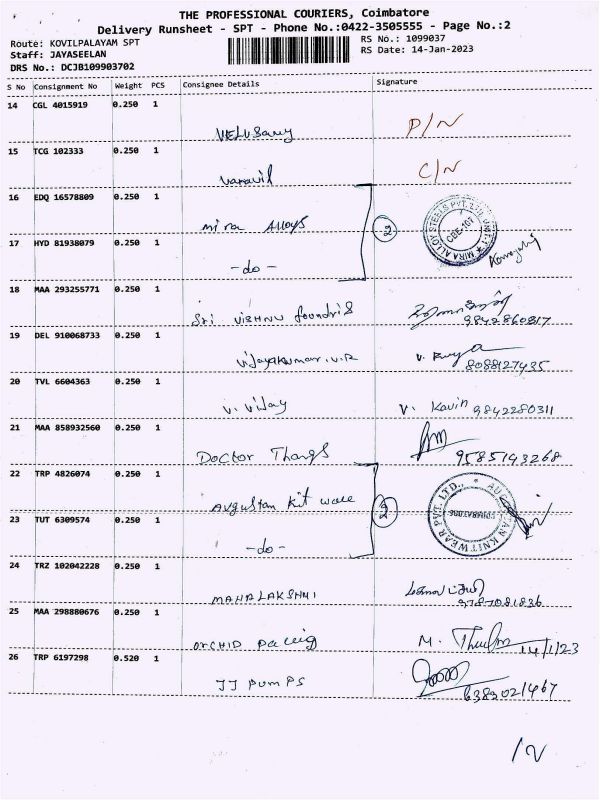 THE PROFESSIONAL COURIERS, Coimbatore
Delivery Runsheet - SPT - Phone No.:0422-3505555 - Page No.:2
Route: KOVILPALAYAM SPT
Staff: JAYASEELAN
DRS No.: DCJB109903702
RS No.: 1099037
RS Date: 14-Jan-2023
S No Consignment No Weight PCS Consignee Details Signature
14 CGL 4015919 0.250 1 VELUSamy P/N
15 TCG 102333 0.250 1 C/N
16 EDQ 16578809 0.250 1 mira Alloys 2 MIRA ALLOY STEELS PVT. LTD. UNIT-1 CBE-107
17 HYD 81938079 0.250 1 -do-
18 MAA 293255771 0.250 1 Sri VISHNU foundris 9842860817
19 DEL 910068733 0.250 1 Vijayakumar.V.R 8088127435
20 TVL 6604363 0.250 1 V. Vijay V. Kavin 9842280311
21 MAA 858932560 0.250 1 Doctor Thangs 9585143268
22 TRP 4826074 0.250 1 Augustan Kit ware 2 KNITWEAR PVT. LTD., COIMBATORE
23 TUT 6309574 0.250 1 -do-
24 TRZ 102042228 0.250 1 MAHALAKSHMI 9787081836
25 MAA 298880676 0.250 1 ORCHID M. 14/1/23
26 TRP 6197298 0.520 1 JJ PUMPS 6383021467